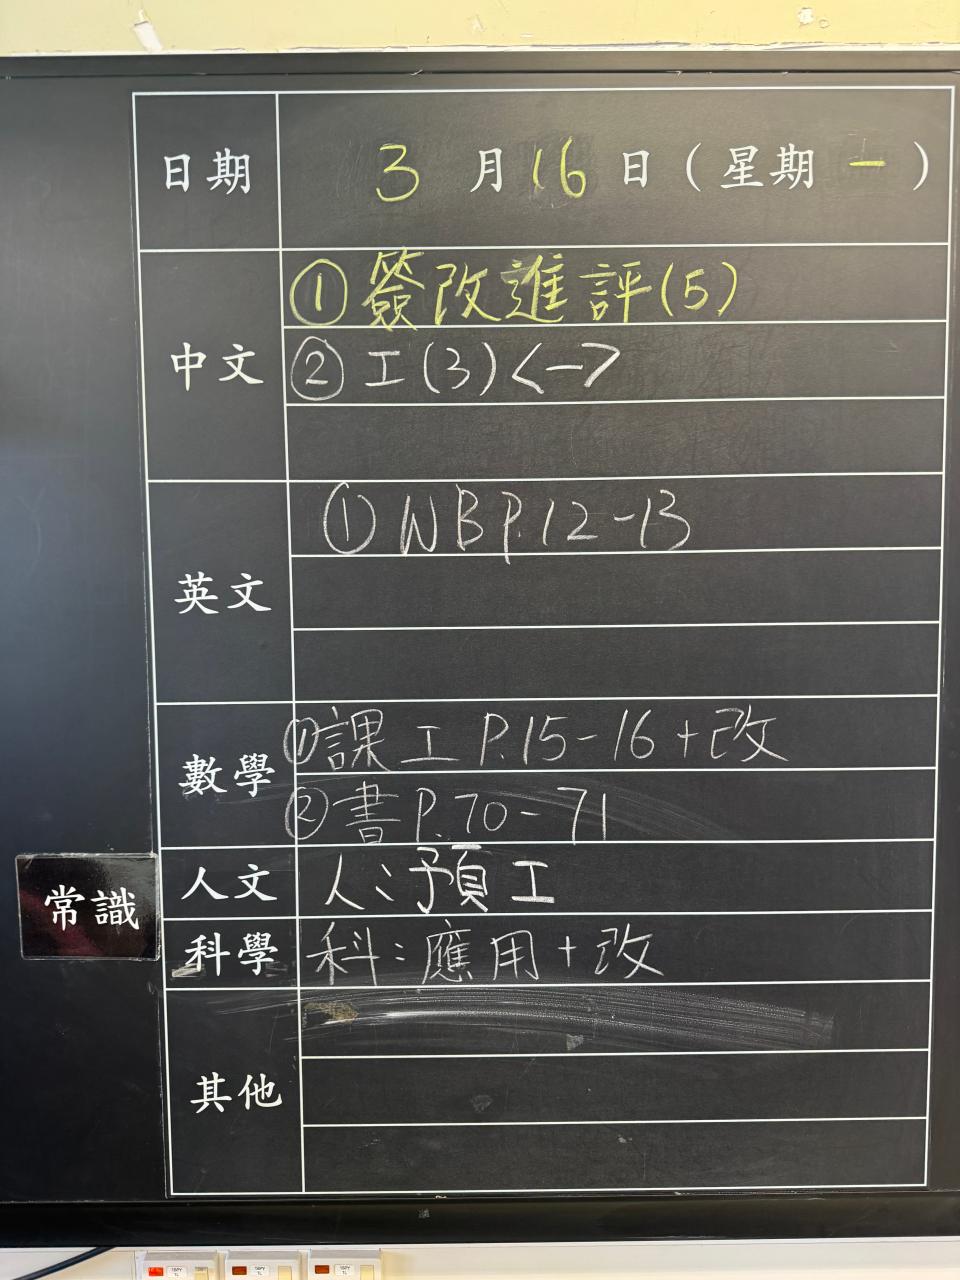 日期 3 月 16 日 (星期 一 )
中文
① 簽改進評(5)
② 工(3)<一>
英文
① WB P.12-13
數學
① 課工 P.15-16 + 改
② 書 P.70-71
人文 人:預工
常識
科學 科:應用 + 改
其他